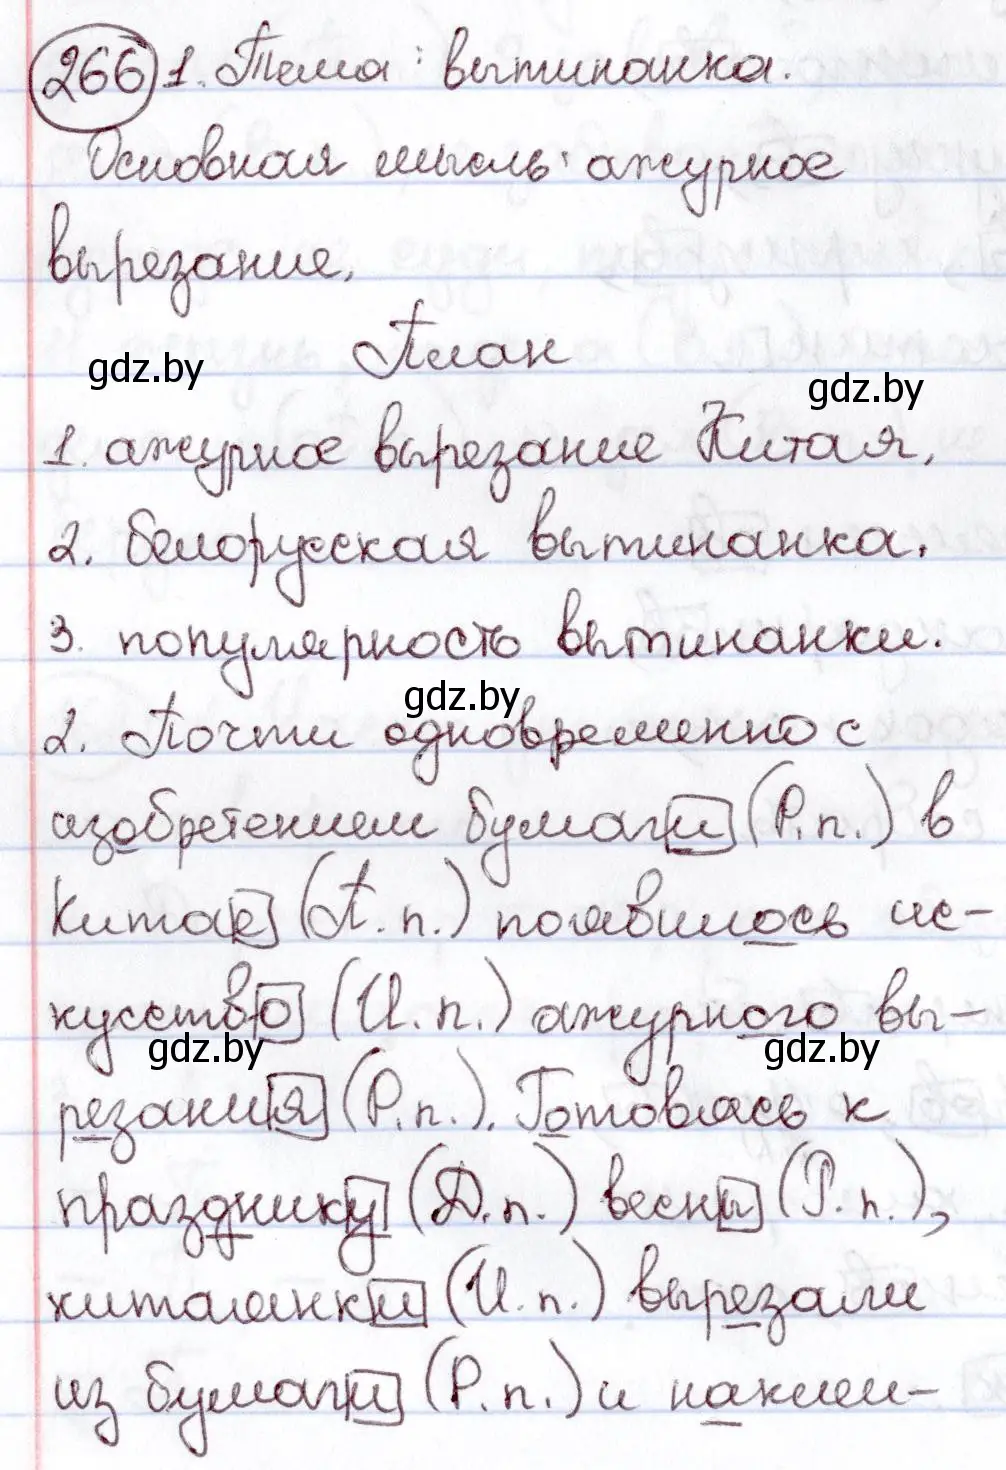 266 1. Тема: вытинанка.
Основная мысль: ажурное
вырезание.
План
gdz.by
gdz.by
1. ажурное вырезание Китая.
2. белорусская вытинанка.
3. популярность вытинанки.
gdz.by
2. Почти одновременно с
изобретением бумаги (Р.п.) в
Китае (П.п.) появилось ис-
кусство (И.п.) ажурного вы-
gdz.by
gdz.by
резания (Р.п.). Готовясь к
празднику (Д.п.) весны (Р.п.),
китаянки (И.п.) вырезали
из бумаги (Р.п.) и наклеи-